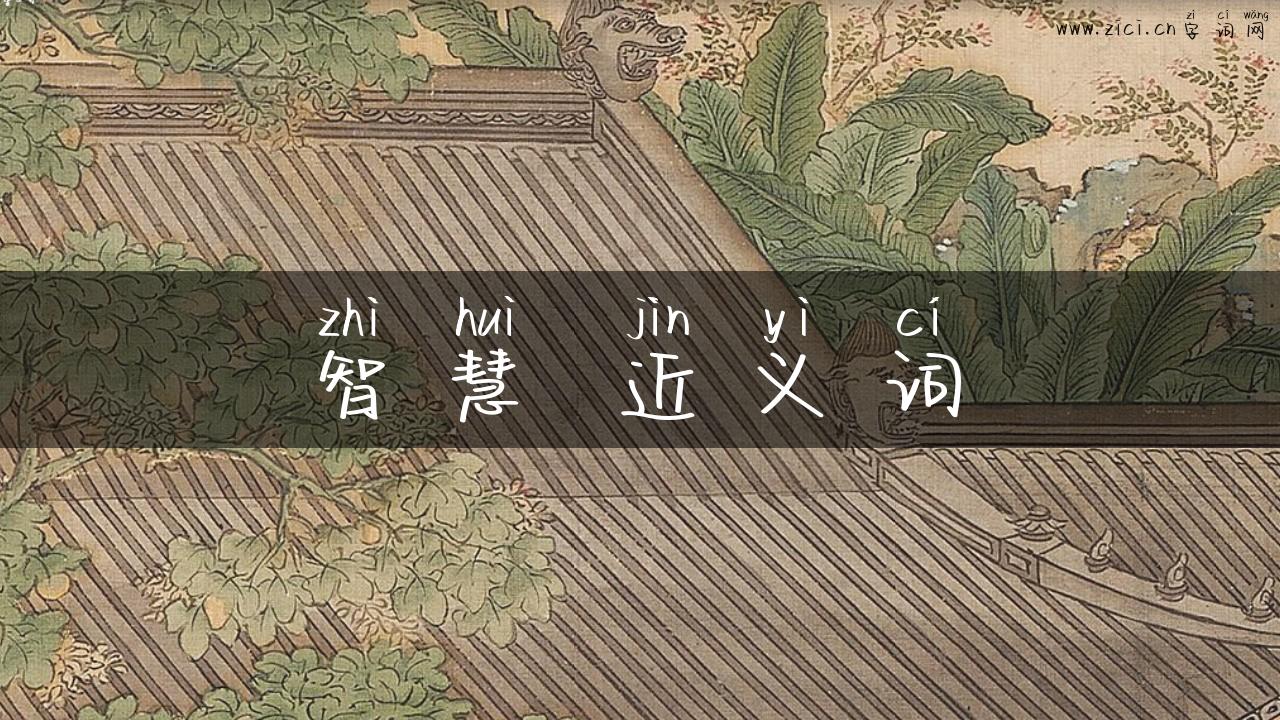 zi ci wǎng
www.zici.cn 字词网
zhì huì jìn yì cí
智慧 近义词